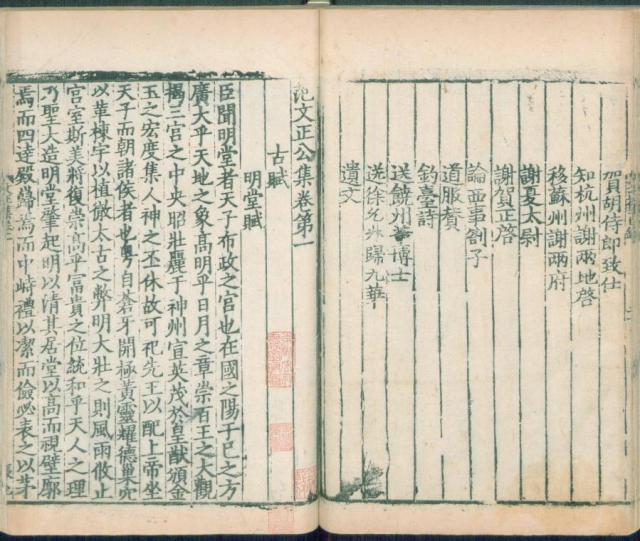 賀胡侍郎致仕
知杭州謝兩地啓
移蘇州謝兩府
謝夏太尉
謝賀正啓
論西事劄子
道服贊
釣臺詩
送饒州董博士
送徐允升歸九華
遺文
范文正公集卷第一
古賦
明堂賦
臣聞明堂者天子布政之宫也在國之陽于巳之方
廣大乎天地之象髙明乎日月之章崇百王之大觀
揭三宫之中央昭壯麗于神州宣英茂於皇猷頒金
玉之宏度集人神之丕休故可祀先王以配上帝坐
天子而朝諸侯者也粤自蒼牙開極黄靈耀德巢穴
以革棟宇以植徹太古之弊明大壯之則風雨攸止
宫室斯美將復崇髙乎富貴之位統和乎天人之理
乃聖大造明堂肇起明以清其居堂以髙而視壁廓
焉而四達殿巋焉而中峙禮以潔而儉必表之以茅